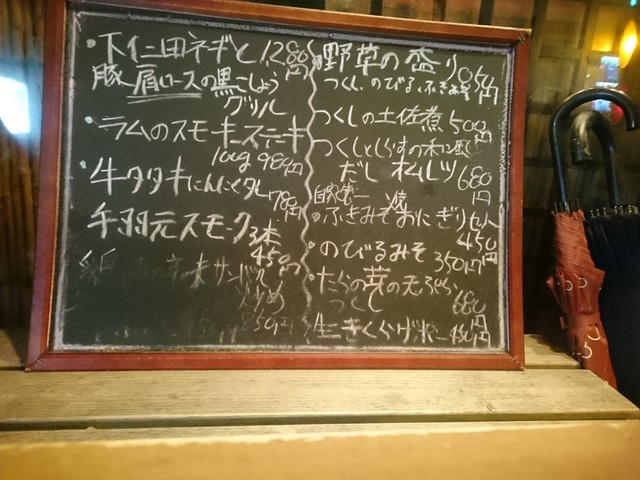 ・下仁田ネギと1280円
豚肩ロースの黒こしょう
グリル
・ラムのスモークステーキ
100g 980円
・牛タタキにんにくダレ780円
手羽元スモーク3本
450円
サンバル
炒め
850円
野草の盛り
つくし、のびる、ふきみそ
つくしの土佐煮500円
つくしとしらすの
だし 680円
自家製
・ふきみそ焼おにぎりセット
450
・のびるみそ 350円
・たらの芽の天ぷら
つくし 680円
生きくらげポン 450円